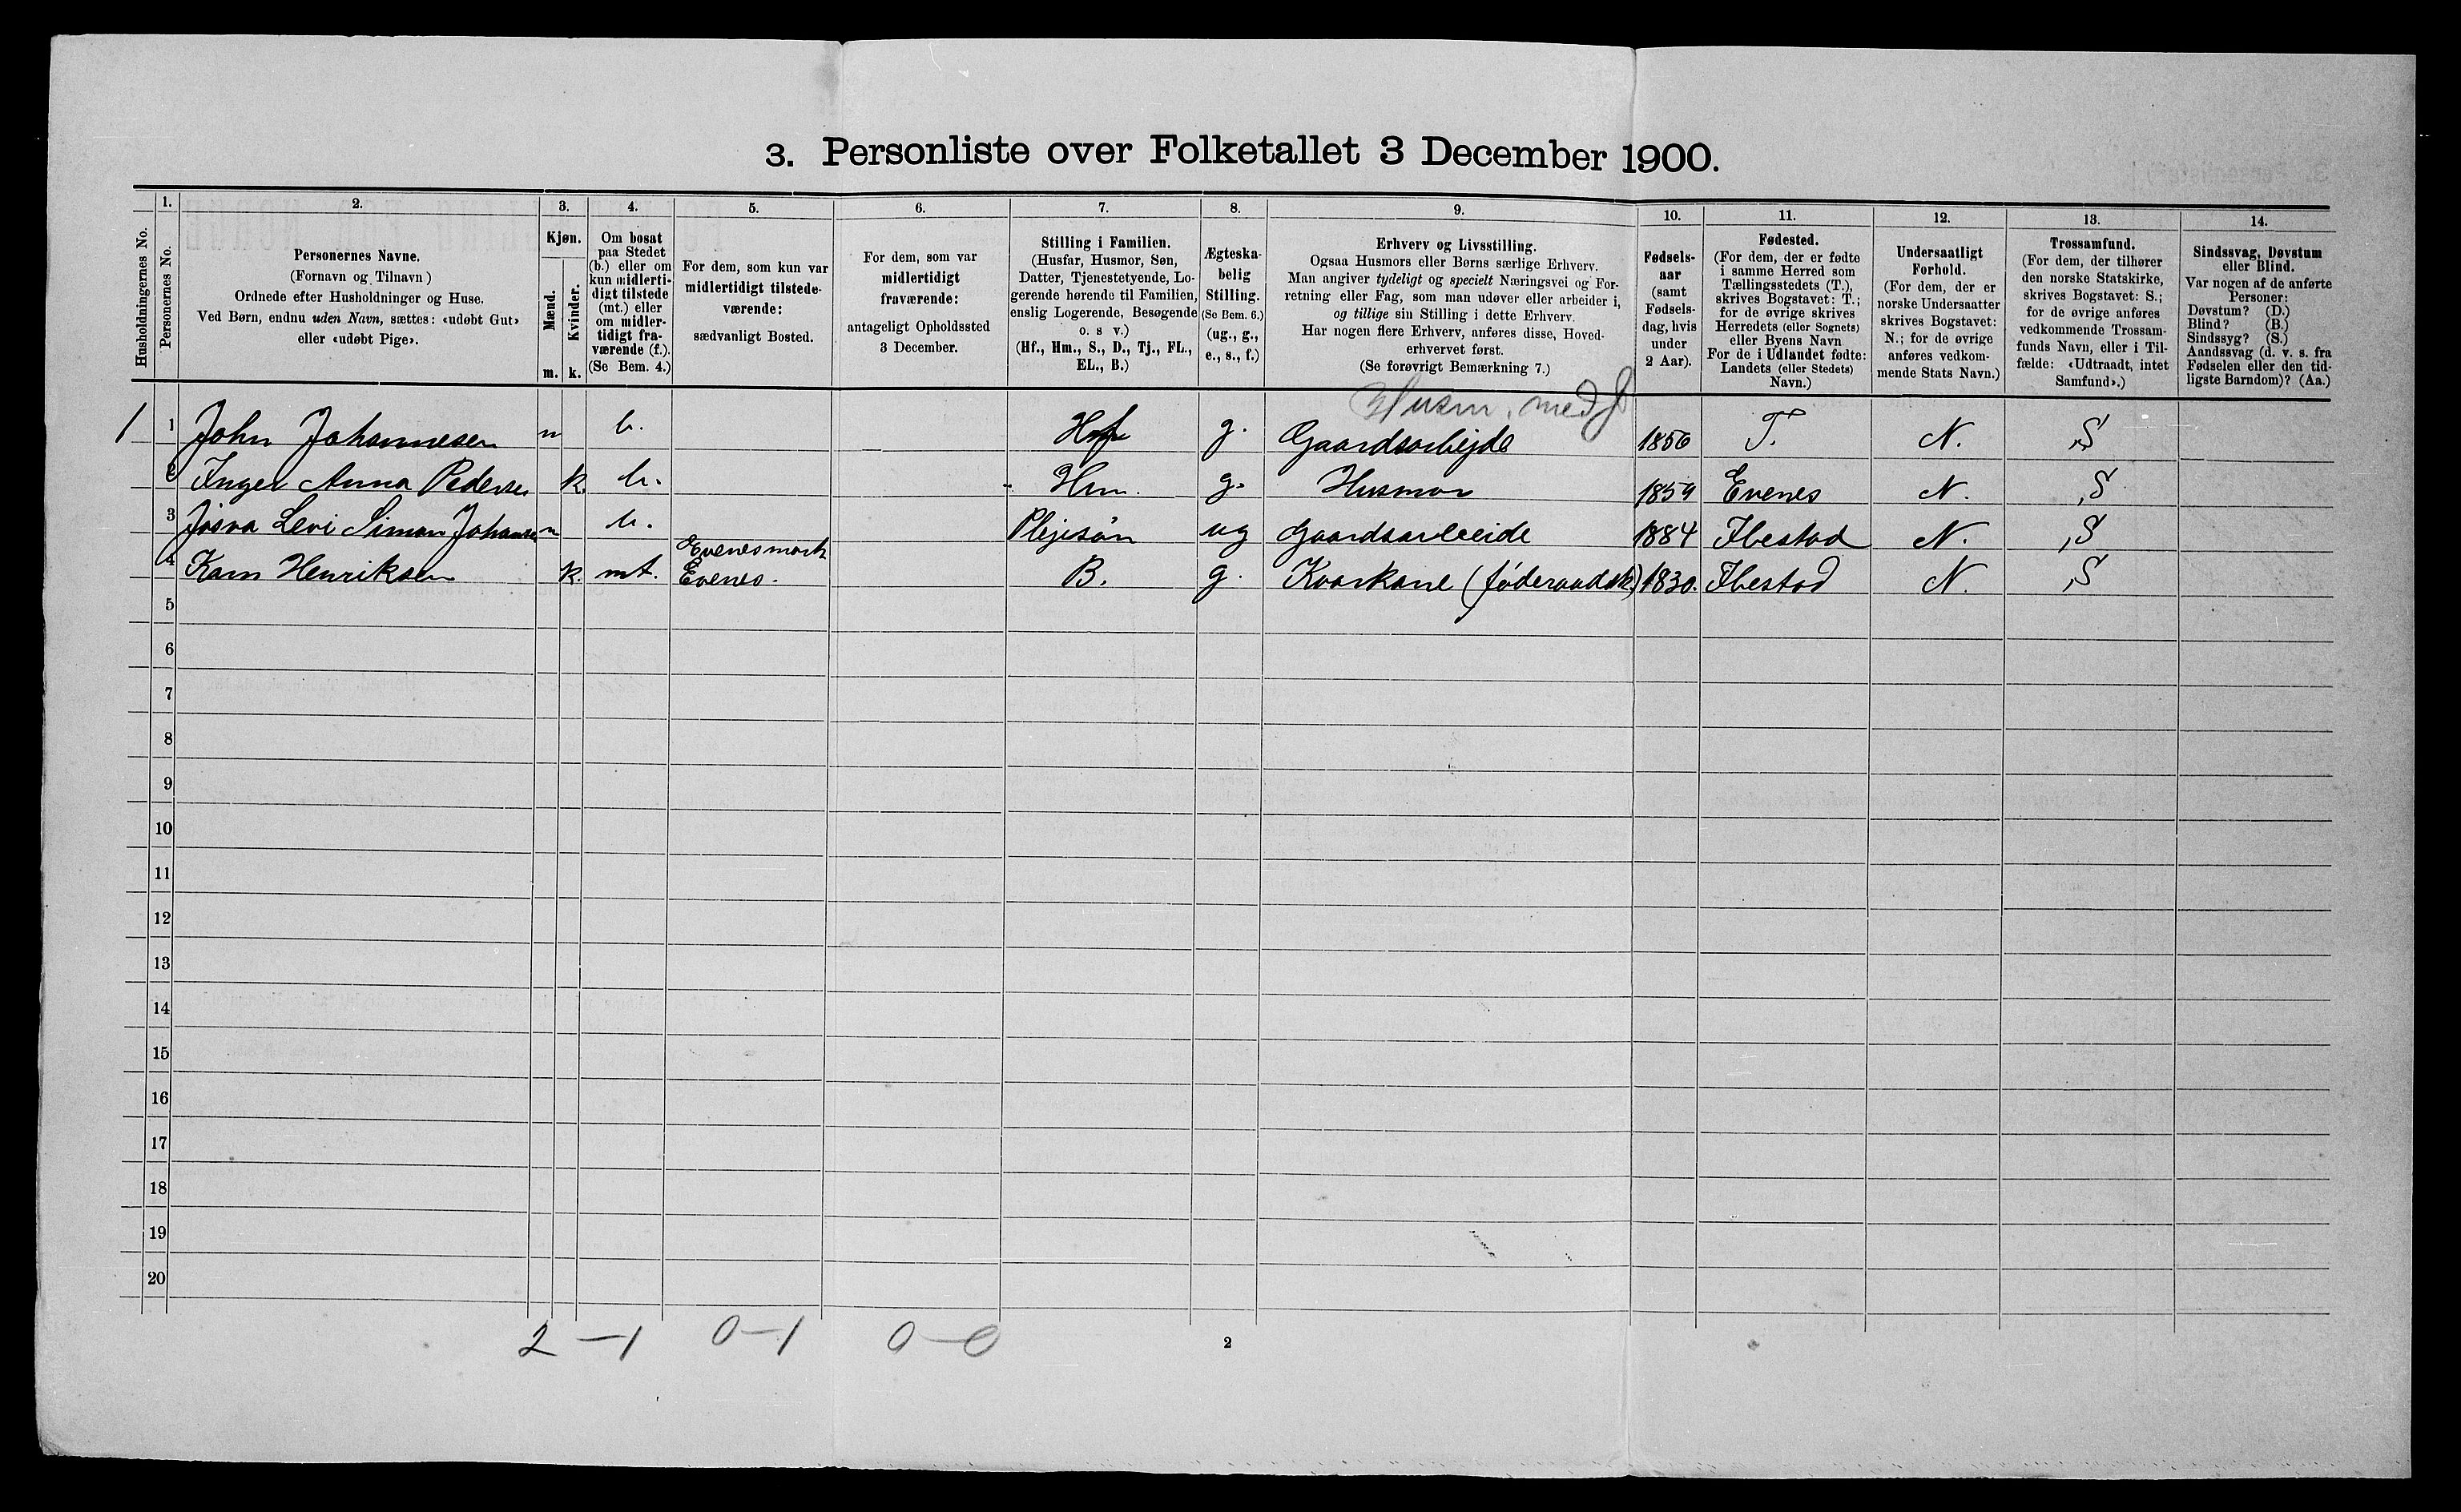 3. Personliste over Folketallet 3 December 1900.
1. 2. 3. 4. 5. 6. 7. 8. 9. 10. 11. 12. 13. 14.
Husholdningernes No.
Personernes No.
Personernes Navne.
(Fornavn og Tilnavn)
Ordnede efter Husholdninger og Huse.
Ved Børn, endnu uden Navn, sættes: «udøbt Gut»
eller «udøbt Pige».
Kjøn.
Mænd.
Kvinder.
m. k.
Om bosat
paa Stedet
(b.) eller om
kun midlerti-
digt tilstede
(mt.) eller
om midler-
tidigt fra-
værende (f.).
(Se Bem. 4.)
For dem, som kun var
midlertidigt tilstede-
værende:
sædvanligt Bosted.
For dem, som var
midlertidigt
fraværende:
antageligt Opholdssted
3 December.
Stilling i Familien.
(Husfar, Husmor, Søn,
Datter, Tjenestetyende, Lo-
gerende hørende til Familien,
enslig Logerende, Besøgende
o. s v.)
(Hf., Hm., S., D., Tj., FL.,
EL., B.)
Ægteska-
belig
Stilling.
(Se Bem. 6.)
(ug., g.,
e., s., f.)
Erhverv og Livsstilling.
Ogsaa Husmors eller Børns særlige Erhverv.
Man angiver tydeligt og specielt Næringsvei og For-
retning eller Fag, som man udøver eller arbeider i,
og tillige sin Stilling i dette Erhverv.
Har nogen flere Erhverv, anføres disse, Hoved-
erhvervet først.
(Se forøvrigt Bemærkning 7.)
Fødsels-
aar
(samt
Fødsels-
dag, hvis
under
2 Aar).
Fødested.
(For dem, der er fødte
i samme Herred som
Tællingsstedets (T.),
skrives Bogstavet: T.;
for de øvrige skrives
Herredets (eller Sognets)
eller Byens Navn
For de i Udlandet fødte:
Landets (eller Stedets)
Navn.)
Undersaatligt
Forhold.
(For dem, der er
norske Undersaatter
skrives Bogstavet:
N.; for de øvrige
anføres vedkom-
mende Stats Navn.)
Trossamfund.
(For dem, der tilhører
den norske Statskirke,
skrives Bogstavet: S.;
for de øvrige anføres
vedkommende Trossam-
funds Navn, eller i Til-
fælde: «Udtraadt, intet
Samfund».)
Sindssvag, Døvstum
eller Blind.
Var nogen af de anførte
Personer:
Døvstum? (D.)
Blind? (B.)
Sindssyg? (S.)
Aandssvag (d. v. s. fra
Fødselen eller den tid-
ligste Barndom)? (Aa.)
Husm. med J
1 1 John Johannesen m b. Hf g. Gaardsarbejde 1856 T. N. S
2 Inger Anna Pedersen k. b. Hm. g. Husmor 1859 Evenes N. S
3 Josva Levi Simon Johansen m b. Plejesøn ug Gaardsarbeide 1884 Ibestad N. S
Evenesmark
4 Karn Henriksen k. mt. Evenes. B. g. Kvarkone (føderaadsk) 1830. Ibestad N. S
5
6
7
8
9
10
11
12
13
14
15
16
17
18
19
20
2 – 1 0 – 1 0 – 0
2